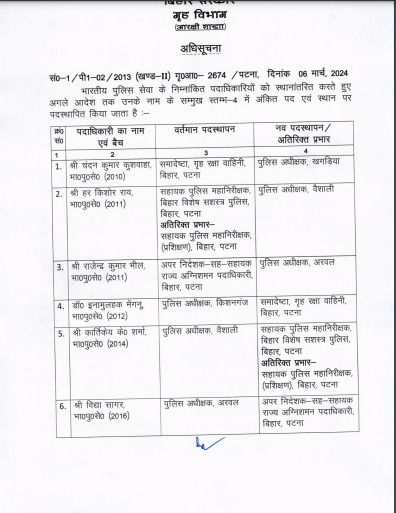 बिहार सरकार
गृह विभाग
(आरक्षी शाखा)
अधिसूचना
सं०-1/पी1-02/2013 (खण्ड-II) गृ०आ०- 2674 /पटना, दिनांक 06 मार्च, 2024
भारतीय पुलिस सेवा के निम्नांकित पदाधिकारियों को स्थानांतरित करते हुए
अगले आदेश तक उनके नाम के सम्मुख स्तम्भ-4 में अंकित पद एवं स्थान पर
पदस्थापित किया जाता है :-
क्र०
सं०
पदाधिकारी का नाम
एवं बैच
वर्तमान पदस्थापन
नव पदस्थापन/
अतिरिक्त प्रभार
1 2 3 4
1. श्री चंदन कुमार कुशवाहा,
भा०पु०से० (2010)
समादेष्टा, गृह रक्षा वाहिनी,
बिहार, पटना
पुलिस अधीक्षक, खगड़िया
2. श्री हर किशोर राय,
भा०पु०से० (2011)
सहायक पुलिस महानिरीक्षक,
बिहार विशेष सशस्त्र पुलिस,
बिहार, पटना
अतिरिक्त प्रभार-
सहायक पुलिस महानिरीक्षक,
(प्रशिक्षण), बिहार, पटना
पुलिस अधीक्षक, वैशाली
3. श्री राजेन्द्र कुमार भील,
भा०पु०से० (2011)
अपर निदेशक-सह-सहायक
राज्य अग्निशमन पदाधिकारी,
बिहार, पटना
पुलिस अधीक्षक, अरवल
4. डॉ० इनामुलहक मेंगनू,
भा०पु०से० (2012)
पुलिस अधीक्षक, किशनगंज
समादेष्टा, गृह रक्षा वाहिनी,
बिहार, पटना
5. श्री कार्तिकेय के० शर्मा,
भा०पु०से० (2014)
पुलिस अधीक्षक, वैशाली
सहायक पुलिस महानिरीक्षक,
बिहार विशेष सशस्त्र पुलिस,
बिहार, पटना
अतिरिक्त प्रभार-
सहायक पुलिस महानिरीक्षक,
(प्रशिक्षण), बिहार, पटना
6. श्री विद्या सागर,
भा०पु०से० (2016)
पुलिस अधीक्षक, अरवल
अपर निदेशक-सह-सहायक
राज्य अग्निशमन पदाधिकारी,
बिहार, पटना